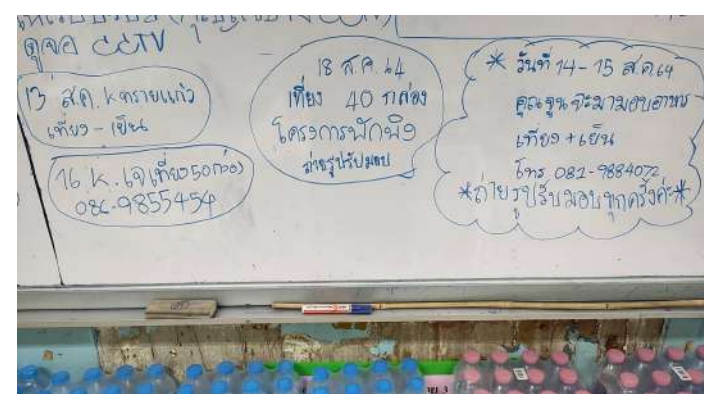 ดูจอ CCTV
13 ส.ค. K ทรายแก้ว
เที่ยง - เย็น
16 K. เจ เที่ยง 50 กล่อง
086-9855454
18 ส.ค. 64
เที่ยง 40 กล่อง
โครงการพักพิง
ถ่ายรูปรับมอบ
* วันที่ 14 - 15 ส.ค. 64
คุณจูน จะมามอบอาหาร
เที่ยง + เย็น
โทร 082-9884072
*ถ่ายรูปรับมอบทุกครั้งค่ะ*